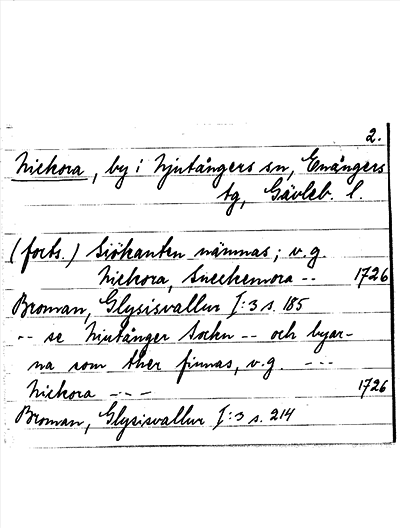 2.
Nickora, by i Njutångers sn, Enångers
tg, Gävleb. l.
(forts.) Siökanten nämnas; v.g.
Nickora, Sneckemora -- 1726
Broman, Glysisvallur I:3 s. 185
-- se Niutånger Sockn -- och byar-
na som ther finnas, v.g. ---
Nickora --- 1726
Broman, Glysisvallur I:3 s. 214